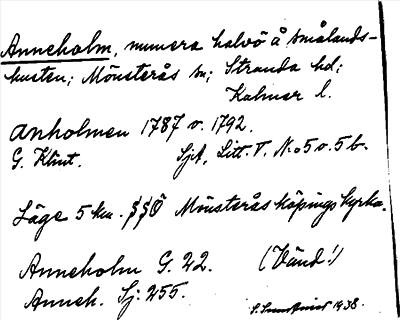 Anneholm, numera halvö å smålands-
kusten; Mönsterås sn; Stranda hd;
Kalmar l.
Anholmen 1787 o. 1792.
G. Klint. Sjk, Litt. T. No 5 o. 5 b.
Läge 5 km. SSÖ Mönsterås köpings kyrka.
Anneholm G. 22. (Vänd!)
Anneh. Sj: 255.
1938.